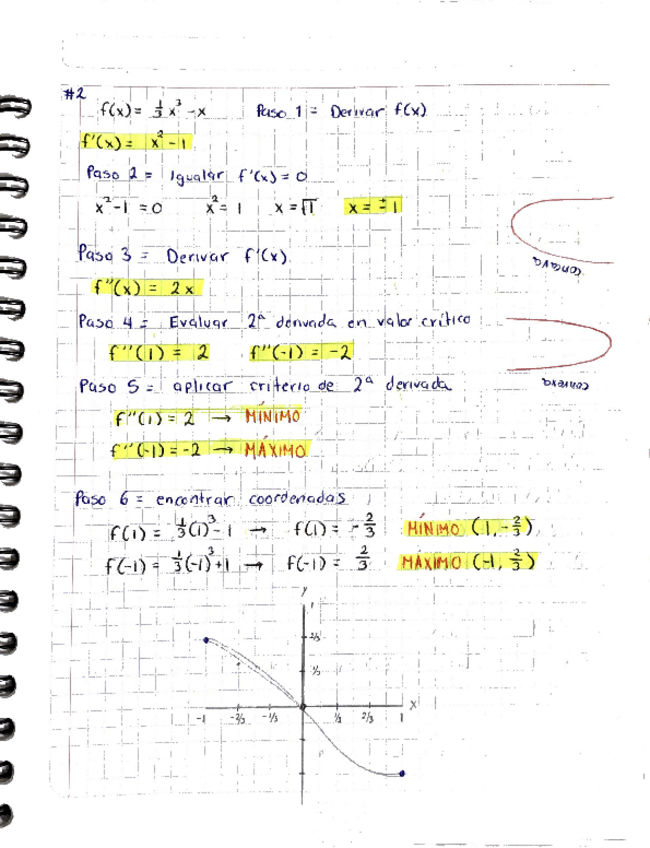 #2
f(x) = 1/3 x³ - x    Paso 1 = Derivar f(x)
f'(x) = x² - 1
Paso 2 = Igualar f'(x) = 0
x² - 1 = 0    x² = 1    x = √1    x = ± 1
Paso 3 = Derivar f'(x)
concava
f''(x) = 2x
Paso 4 = Evaluar 2ª derivada en valor crítico
f''(1) = 2    f''(-1) = -2
Paso 5 = aplicar criterio de 2ª derivada
convexa
f''(1) = 2 → MÍNIMO
f''(-1) = -2 → MÁXIMO
Paso 6 = encontrar coordenadas
f(1) = 1/3(1)³ - 1 → f(1) = -2/3    MÍNIMO (1, -2/3)
f(-1) = 1/3(-1)³ + 1 → f(-1) = 2/3    MÁXIMO (-1, 2/3)
y
1
2/3
1/3
x
-1    -2/3    -1/3    1/3    2/3    1